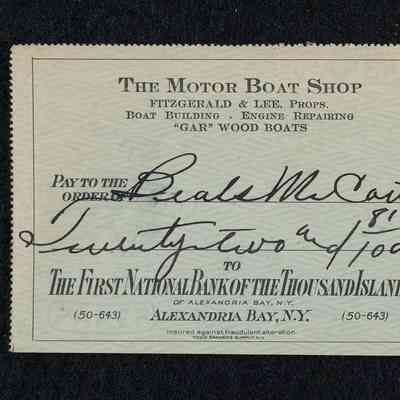 THE MOTOR BOAT SHOP
FITZGERALD & LEE, PROPS.
BOAT BUILDING - ENGINE REPAIRING
"GAR" WOOD BOATS
PAY TO THE
ORDER OF Beals McCar
Twenty-two and 81/100
TO
THE FIRST NATIONAL BANK OF THE THOUSAND ISLAN
OF ALEXANDRIA BAY, N.Y.
(50-643) ALEXANDRIA BAY, N.Y. (50-643)
Insured against fraudulent alteration